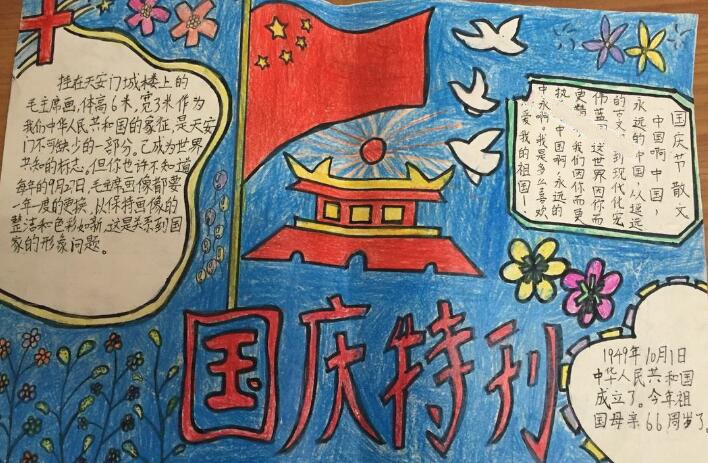 挂在天安门城楼上的
毛主席画,体高6米,宽3米作为
我们中华人民共和国的象征,是天安
门不可缺少的一部分。己成为世界
共知的标志。但你也许不知道
每年的9月27日,毛主席画像都要
一年一度的更换,以保持画像的
整洁和色彩如新,这是关系到国
家的形象问题。
国庆节散文
中国啊中国,
永远的中国!从遥远
的古 到现代化宏
伟蓝 这世界因你而
更精 我们因你而更
执 中国啊,永远的
中 啊。我是多么喜欢
爱我的祖国!
国庆特刊
1949年10月1日
中华人民共和国
成立了。今年祖
国母亲66周岁了。